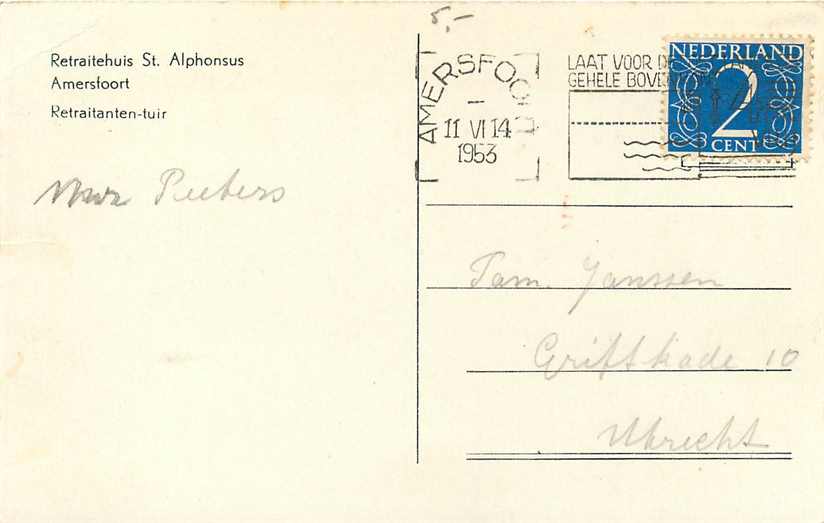 5,-
Retraitehuis St. Alphonsus
Amersfoort
Retraitanten-tuir
AMERSFOORT
11 VI 14
1953
LAAT VOOR DE
GEHELE BOVE
NEDERLAND
2
CENT
Peeters
Fam. Janssen
Griftkade 10
Utrecht